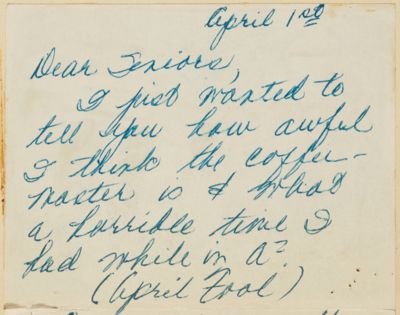 April 1st
Dear Seniors,
I just wanted to
tell you how awful
I think the coffee-
master is & what
a horrible time I
had while in A².
(April Fool)